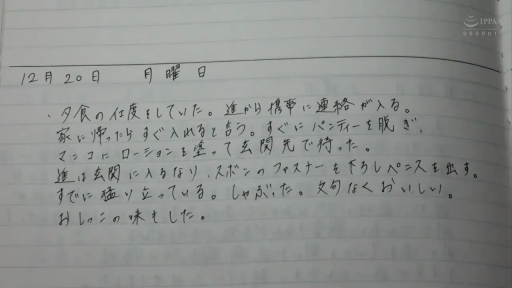 IPPA
12月20日 月曜日
・夕食の仕度をしていた。進から携帯に連絡が入る。
家に帰ったらすぐ入れると言う。すぐにパンティーを脱ぎ、
マンコにローションを塗って玄関先で待った。
進は玄関に入るなり、ズボンのファスナーを下ろしペニスを出す。
すでに猛り立っている。しゃぶった。文句なくおいしい。
おしっこの味もした。